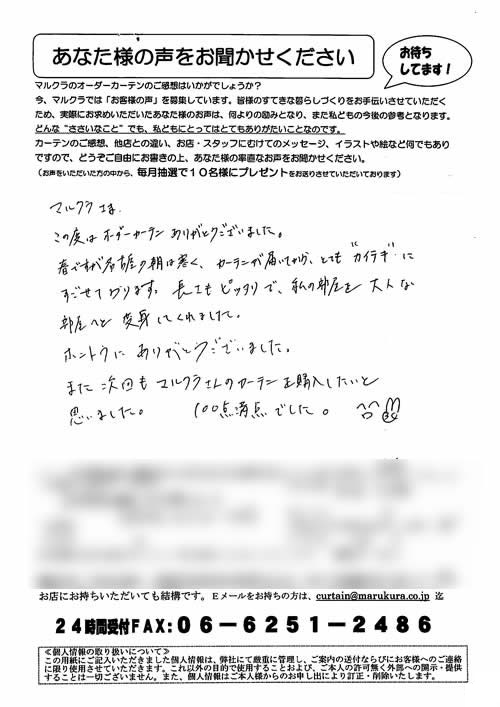 あなた様の声をお聞かせください
お待ち
してます!
マルクラのオーダーカーテンのご感想はいかがでしょうか?
今、マルクラでは「お客様の声」を募集しています。皆様のすてきな暮らしづくりをお手伝いさせていただく
ため、実際にお求めいただいたあなた様のお声は、何よりの励みとなり、また私どもの今後の参考となります。
どんな“ささいなこと”でも、私どもにとってはとてもありがたいことなのです。
カーテンのご感想、他店との違い、お店・スタッフにむけてのメッセージ、イラストや絵など何でもあり
ですので、どうぞご自由にお書きの上、あなた様の率直なお声をお聞かせください。
(お声をいただいた方の中から、毎月抽選で10名様にプレゼントをお送りさせていただいております)
マルクラさま
この度はオーダーカーテンありがとうございました。
春ですが名古屋の朝は寒く、カーテンが届いてから、とても“カイテキ”に
すごせております。長さもピッタリで、私の部屋を大人な
部屋へと変身してくれました。
ホントウにありがとうございました。
また次回もマルクラさんのカーテンを購入したいと
思いました。 100点満点でした。
お店にお持ちいただいても結構です。Eメールをお持ちの方は、curtain@marukura.co.jp 迄
24時間受付FAX:06-6251-2486
≪個人情報の取り扱いについて≫
この用紙にご記入いただきました個人情報は、弊社にて厳重に管理し、ご案内の送付ならびにお客様へのご連絡
に限り使用させていただきます。これ以外の目的で使用することおよび、ご本人の許可無く外部への開示・提供
することは一切ございません。また、個人情報はご本人様からのお申し出により訂正・削除いたします。